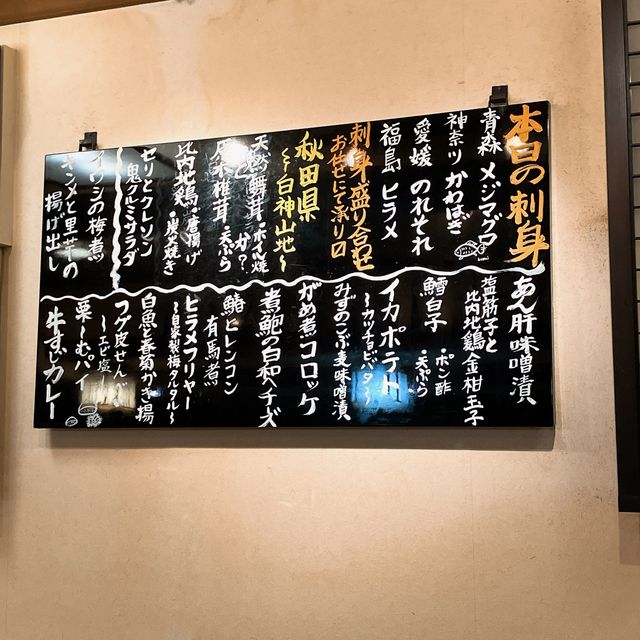 本日の刺身
青森 メジマグロ
神奈ツ かわはぎ
愛媛 のれそれ
福島 ヒラメ
刺身盛り合わせ
お任せにて承り口
秋田県
〜白神山地〜
天然舞茸・ホイル焼
・天ぷら
比内地鶏・唐揚げ
・炭火焼き
セリとクレソン
鬼クルミサラダ
イワシの梅煮
キンメと里芋の
揚げ出し
あん肝味噌漬
塩筋子と
比内地鶏金柑玉子
鱈白子 ・ポン酢
・天ぷら
イカポテト
〜カツチョビバタ〜
みずのこぶ麦味噌漬
がめ煮コロッケ
煮鮑の白和へチーズ
鰆ヒレンコン
有馬煮
ヒラメフリャー
〜自家製梅タルタル〜
白魚と春菊かき揚
フグ皮せんべ
〜エビ塩〜
栗ーむパイ
牛すじカレー